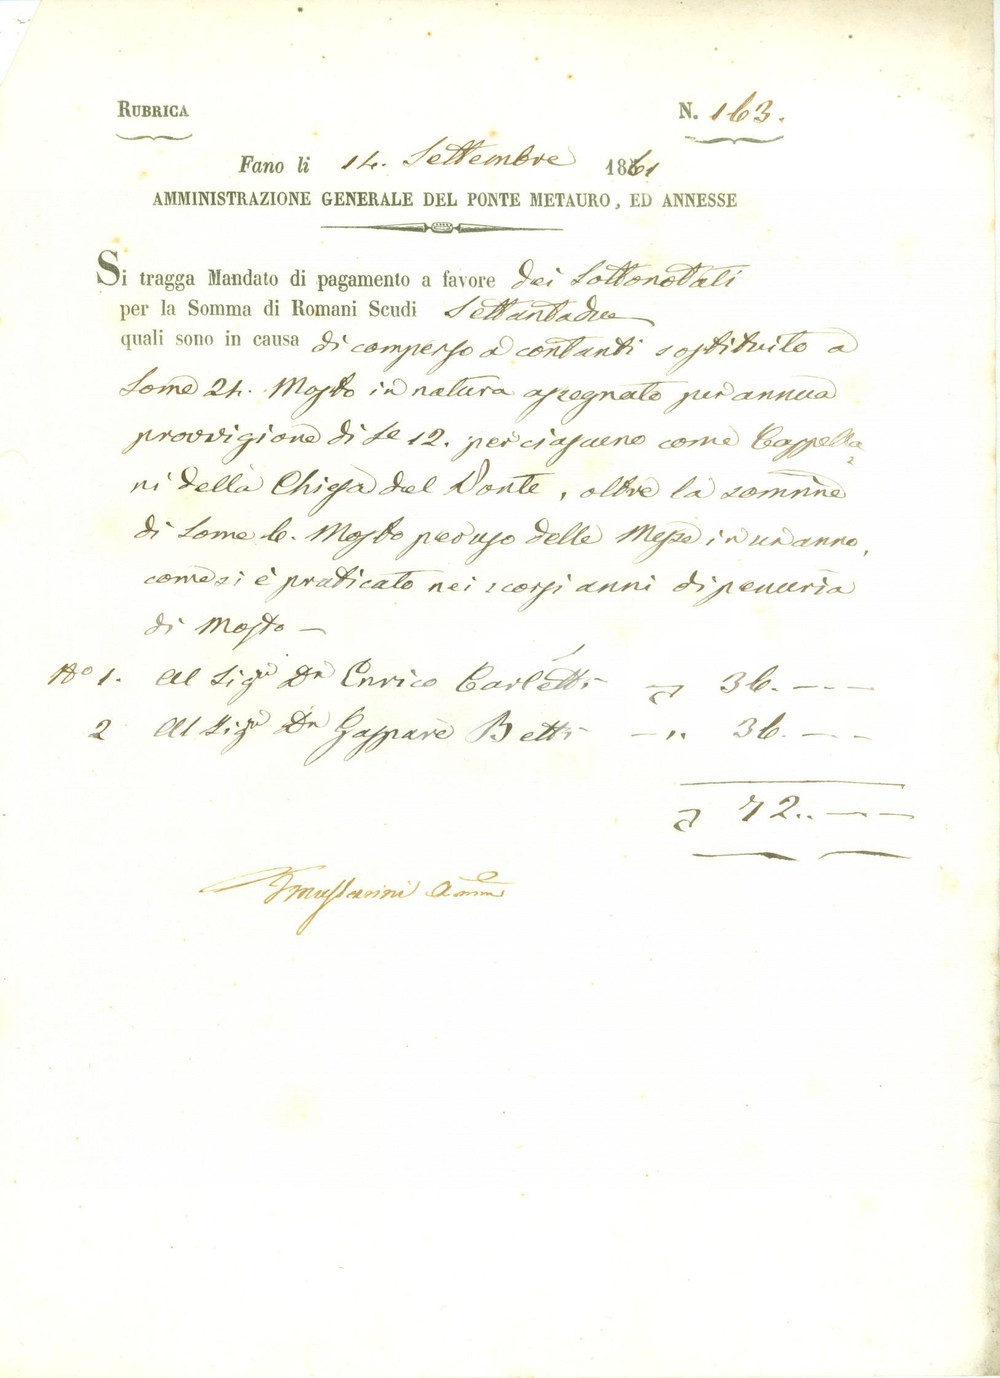 RUBRICA
N. 163.
Fano li 14. Settembre 1861
AMMINISTRAZIONE GENERALE DEL PONTE METAURO, ED ANNESSE
Si tragga Mandato di pagamento a favore dei Sottonotati
per la Somma di Romani Scudi Settantadue
quali sono in causa di compenso a contanti sostituito a
Some 24. Mosto in natura assegnato per annua
provvigione di Se 12. per ciascuno come Cappella-
ni della Chiesa del Ponte, oltre la somma
di Some 6. Mosto per uso delle Messe in un anno,
come si è praticato nei scorsi anni di penuria
di Mosto —
No 1. Al Sigr Dn Enrico Carletti 36. - - -
2 Al Sigr Dn Gaspare Betti — ". 36. - - -
72.. - - -
Amm